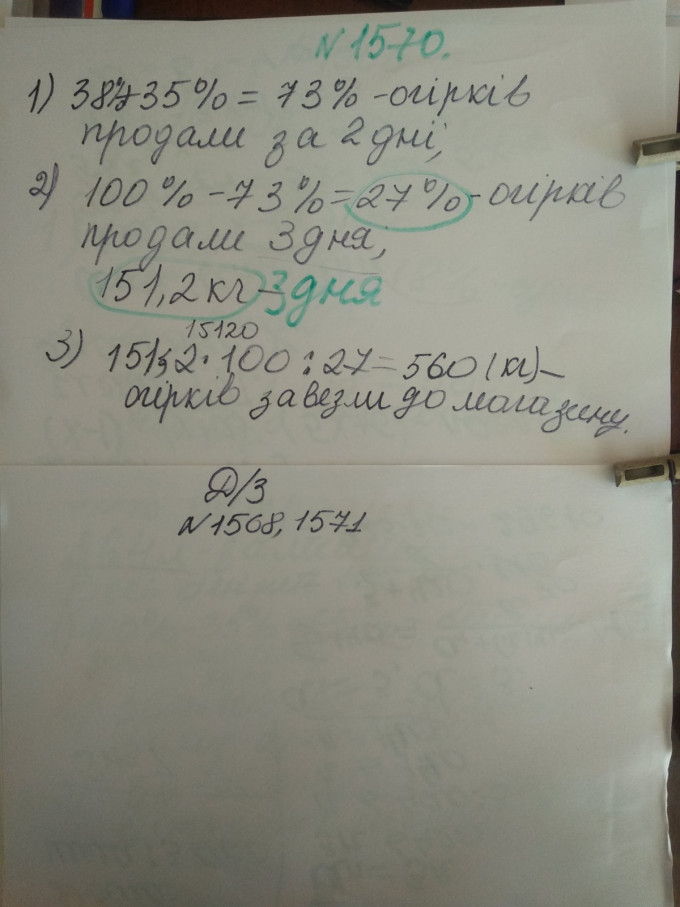 N 1570.
1) 38%+35% = 73% - огірків
продали за 2 дні,
2) 100% - 73% = 27% - огірків
продали 3 дня,
151,2 кг - 3 дня
15120
3) 151,2 · 100 : 27 = 560 (кг) -
огірків завезли до магазину.
Д/З
N 1568, 1571